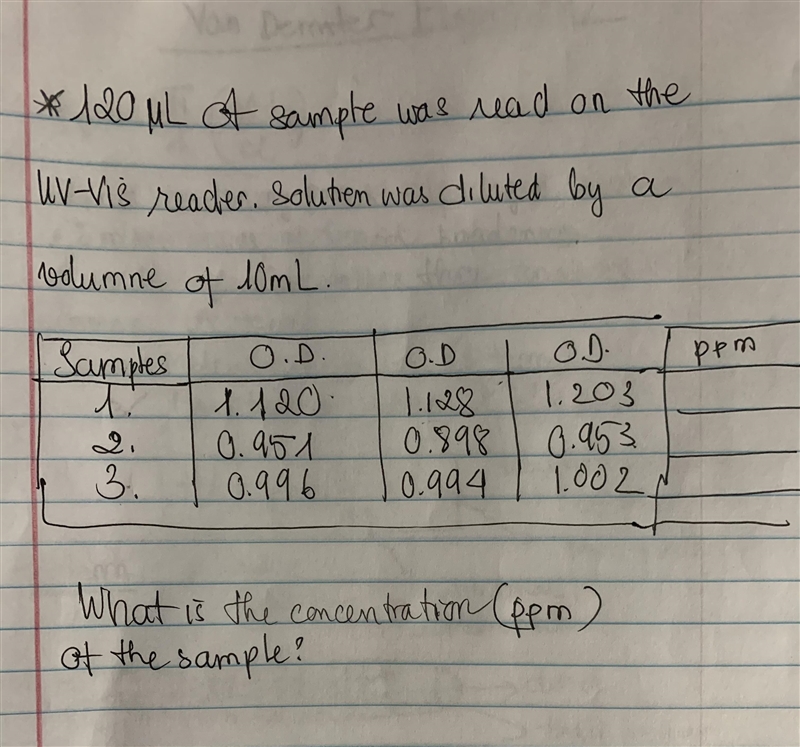 * 120 µL of sample was read on the
UV-Vis reader. Solution was diluted by a
volumne of 10mL.
Samples O.D. O.D O.D. ppm
1. 1.120 1.128 1.203
2. 0.951 0.898 0.953
3. 0.996 0.994 1.002
What is the concentration (ppm)
of the sample?